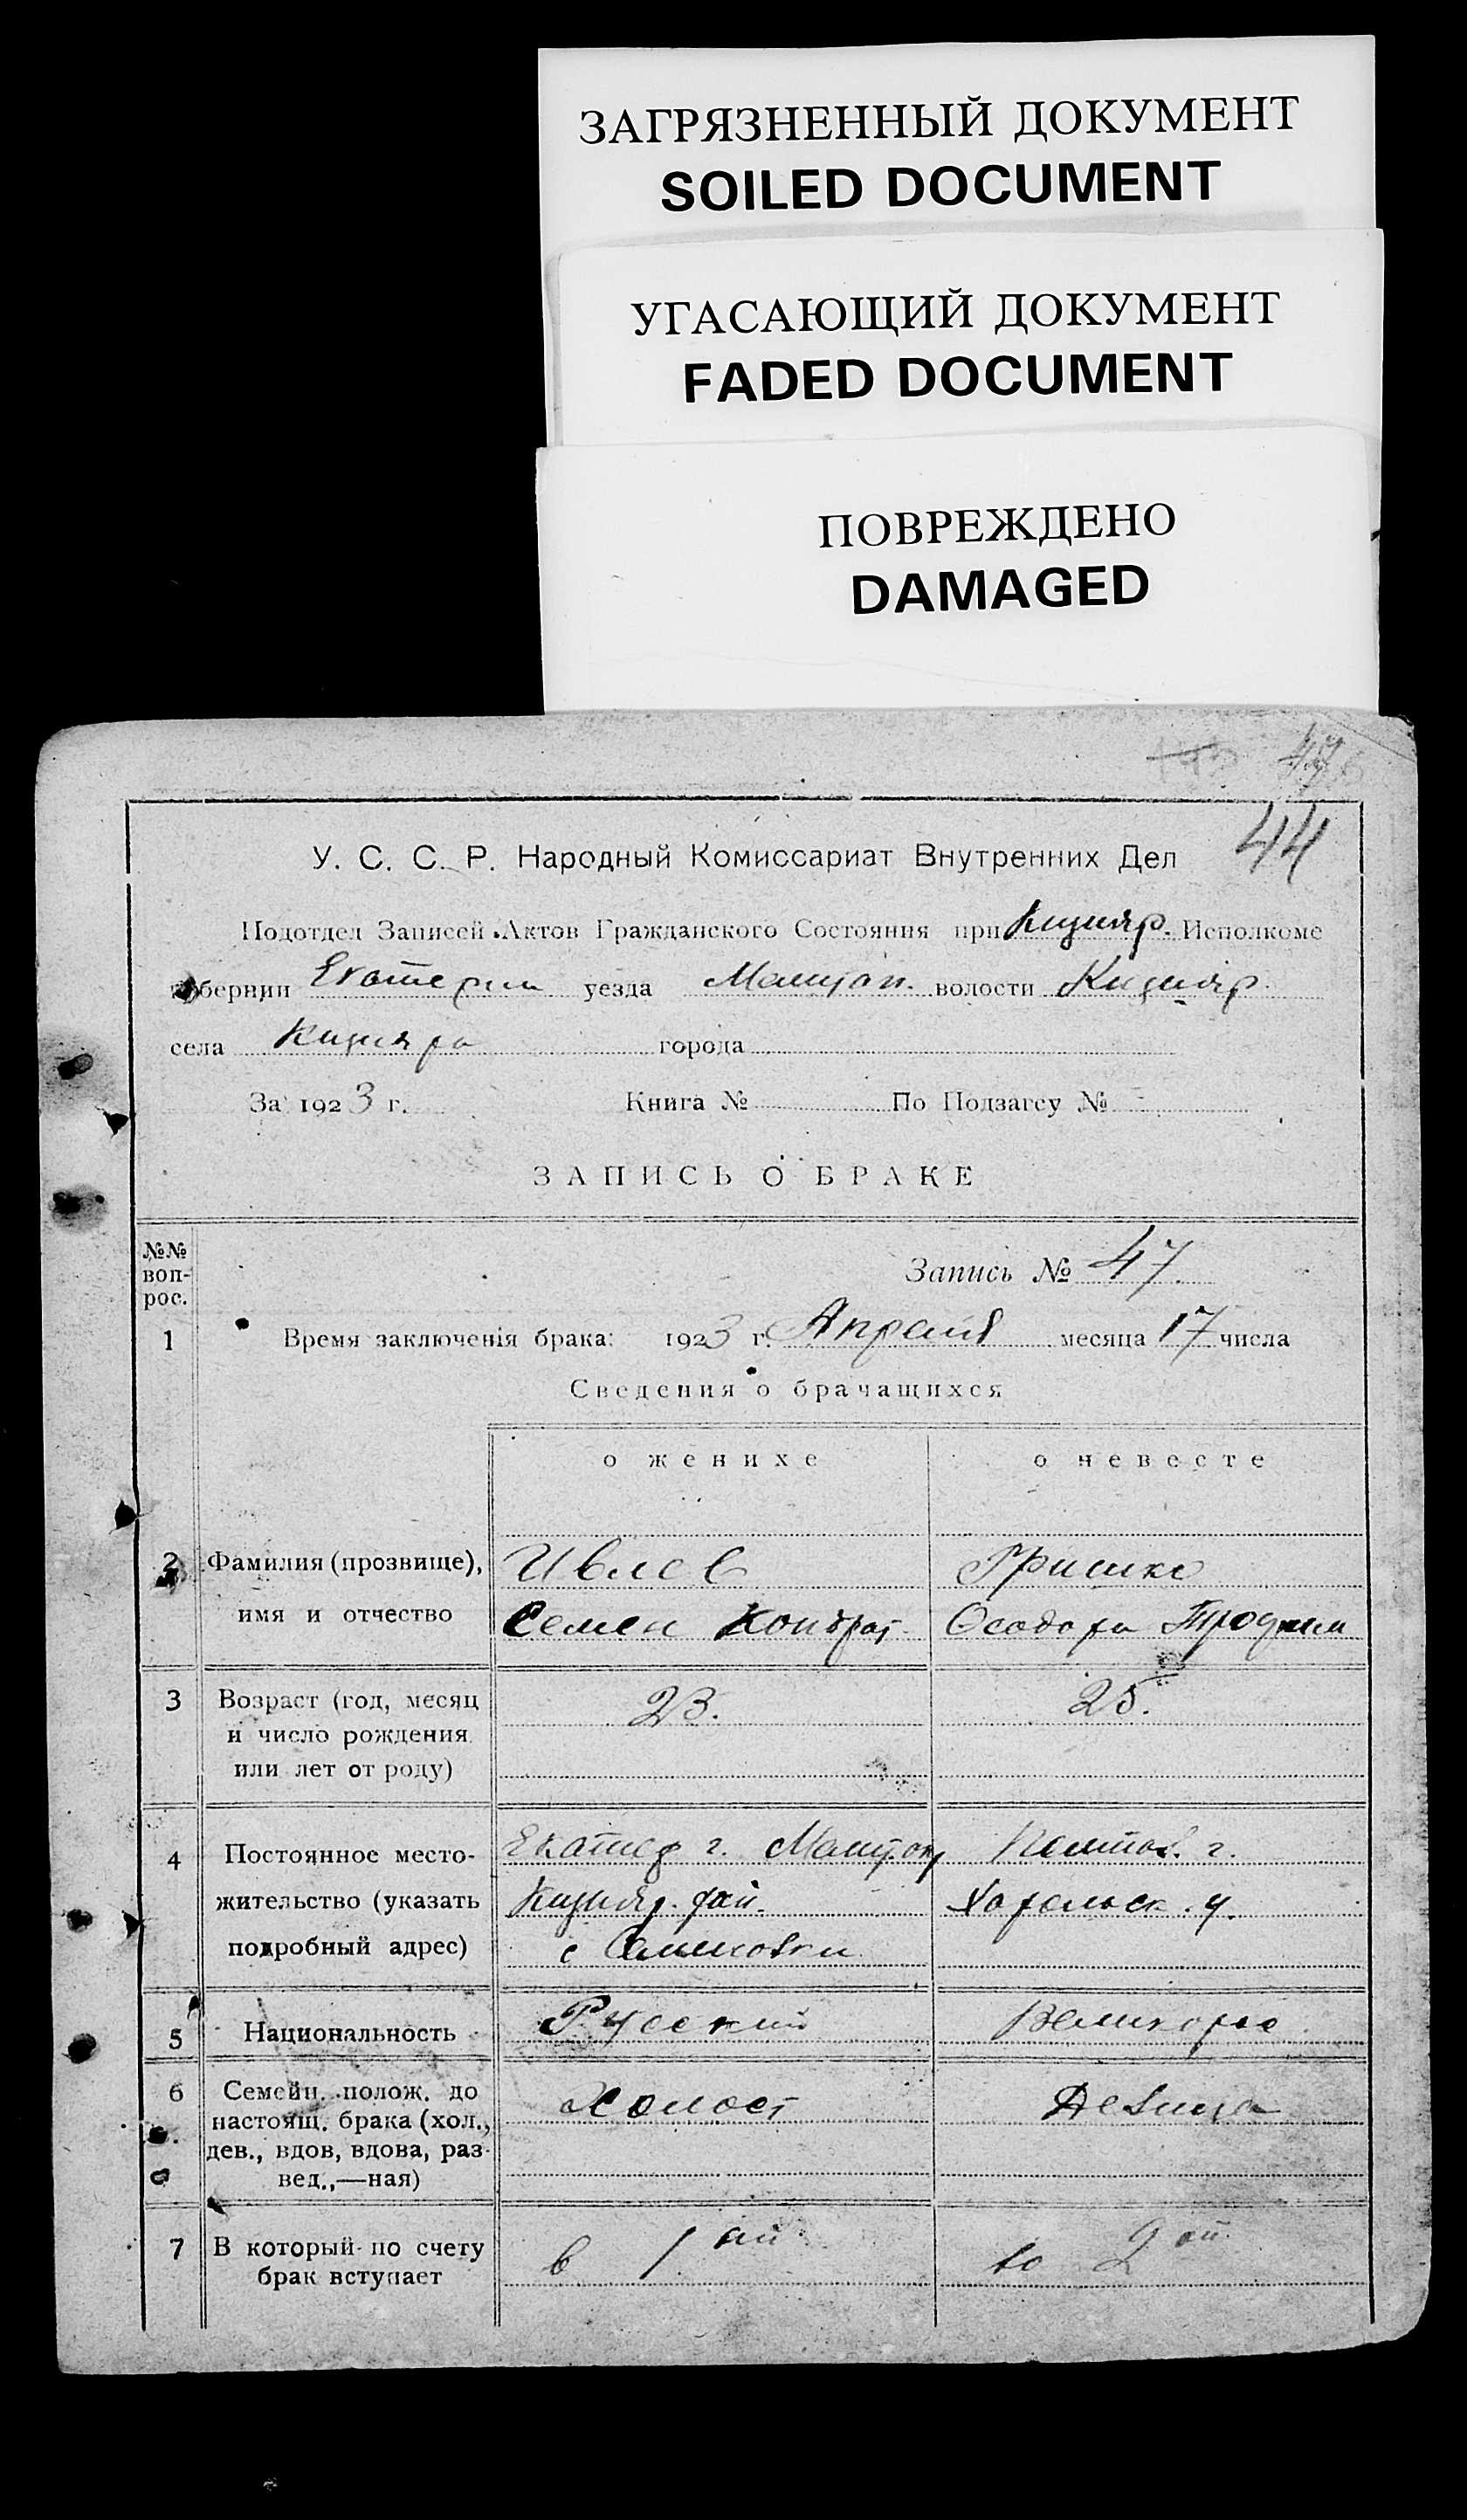 ЗАГРЯЗНЕННЫЙ ДОКУМЕНТ
SOILED DOCUMENT
УГАСАЮЩИЙ ДОКУМЕНТ
FADED DOCUMENT
ПОВРЕЖДЕНО
DAMAGED
47
44
У. С. С. Р. Народный Комиссариат Внутренних Дел
Подотдел Записей Актов Гражданского Состояния при Кизияр. Исполкоме
губернии Екатерин уезда Мелитоп. волости Кизияр.
села Кизияра города
За 1923 г. Книга № По Подзагсу №
ЗАПИСЬ О БРАКЕ
№№ воп-рос.
Запись № 47
1 Время заключенія брака: 1923 г. Апреля месяца 17 числа
Сведения о брачащихся
о женихе о невесте
2 Фамилия (прозвище), Ивлев Гришко
имя и отчество Семен Кондрат. Феодора
3 Возраст (год, месяц 23. 25.
и число рождения
или лет от роду)
4 Постоянное место- Екатер г. Мелитоп у Полтов. г.
жительство (указать Кизияр. рай. Хорольск. у.
подробный адрес) с
5 Национальность Русский Великорос
6 Семейн. полож. до Холост Девица
настоящ. брака (хол.,
дев., вдов, вдова, раз-
вед.,—ная)
7 В который по счету в 1ый во 2ой
брак вступает